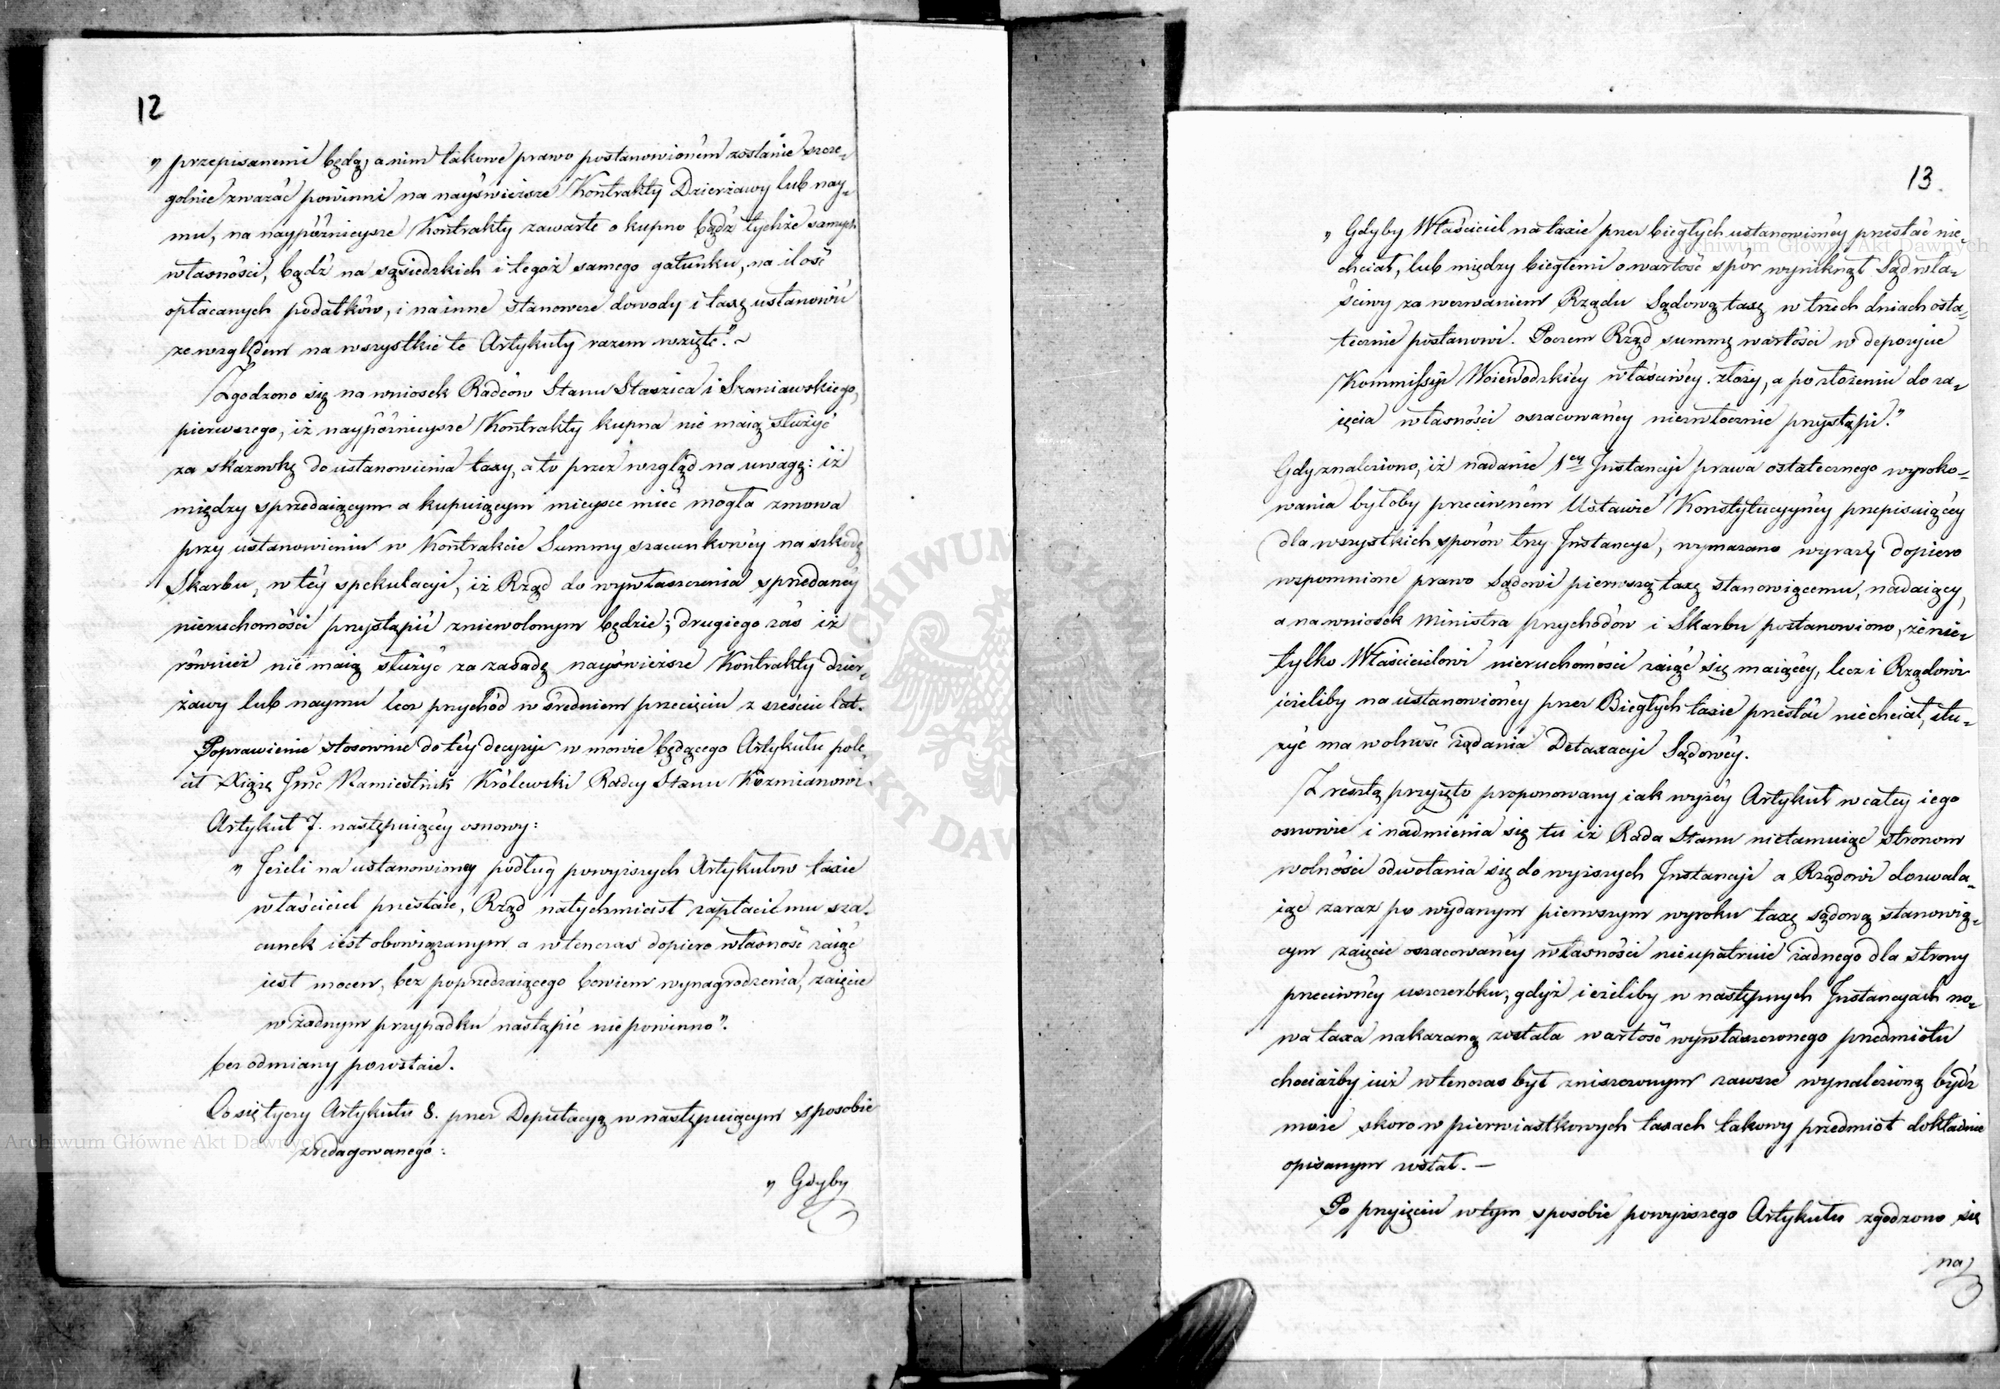 12
„ przepisanemi będą, a nim takowe prawo postanowionem zostanie szcze„
golnie zważać powinni na nayświeższe Kontrakty Dzierżawy lub nay„
mu, na naypóźnieysze Kontrakty zawarte o kupno bądź tychże samych
własności, bądź na sąsiedzkich i tegoż samego gatunku, na ilość
opłacanych podatków, i na inne stanowcze dowody i taxę ustanowić
ze względem na wszystkie te Artykuły razem wzięte." ~
Zgodzono się na wniosek Radców Stanu Staszica i Szaniawskiego,
pierwszego, iż naypóźnieysze Kontrakty kupna nie maią służyć
za skazowkę do ustanowienia taxy, a to przez wzgląd na uwagę: iż
między sprzedaiącym a kupuiącym mieysce mieć mogła zmowa
przy ustanowieniu w Kontrakcie Summy szacunkowéy na szkodę
Skarbu, w téy spekulacyi, iż Rząd do wywłaszczenia sprzedanéy
nieruchomości przystąpić zniewolonym będzie; drugiego zaś iż
również nie maią służyć za zasadę nayświeższe Kontrakty dzier„
żawy lub naymu lecz przychód w średniem przecięciu z sześciu lat.
Poprawienie stosownie do téy decyzyi w mowie będącego Artykułu pole„
cił Xiążę Jmć Namiestnik Królewski Radcy Stanu Koźmianowi.
Artykuł 7. następuiącéy osnowy:
„ Jeżeli na ustanowioney podług powyższych Artykułow taxie
właściciel przestaie, Rząd natychmiast zapłacić mu sza„
cunek iest obowiązanym a wtenczas dopiero własność zaiąć
iest mocen, bez poprzedzaiącego bowiem wynagrodzenia, zaięcie
w żadnym przypadku nastąpić niepowinno".
bez odmiany pozostaie.
Co się tycze Artykułu 8. przez Deputacyą w następuiącym sposobie
zredagowanego:
„ Gdyby
13.
„ Gdyby Właściciel na taxie przez biegłych ustanowionéy przestać nie
chciał, lub między biegłemi o wartość spór wyniknął Sąd wła„
ściwy za wezwaniem Rządu Sądową taxę w trzech dniach osta„
tecznie postanowi. Poczem Rząd summę wartości w depozycie
Kommissyi Woiewodzkiéy właściwéy złoży, a po złożeniu do za„
ięcia własności oszacowanéy niezwłocznie przystąpi."
Gdy znaleziono, iż nadanie 1ey Instancyi prawa ostatecznego wyroko„
wania byłoby przeciwném Ustawie Konstytucyynéy przepisuiącéy
dla wszystkich sporów trzy Instancye, wymazano wyrazy dopiero
wspomnione prawo Sądowi pierwszą taxę stanowiącemu, nadaiące,
a na wniosek Ministra przychodów i Skarbu postanowiono, że nie„
tylko Właścicielowi nieruchomości zaiąć się maiącéy, lecz i Rządowi
ieżeliby na ustanowionéy przez Biegłych taxie przestać niechciał, słu„
żyć ma wolność żądania Detaxacyi Sądowéy.
Zresztą przyięto proponowany iak wyżéy Artykuł w całéy iego
osnowie i nadmienia się tu iż Rada Stanu nietamuiąc stronom
wolności odwołania się do wyższych Instancyi a Rządowi dozwala„
iąc zaraz po wydanym pierwszym wyroku taxę sądową stanowią„
cym zaięcie oszacowanéy własności nieupatruie żadnego dla strony
przeciwnéy uszczerbku, gdyż ieżeliby w następnych Instancyach no„
wa taxa nakazaną została wartość wywłaszczonego przedmiotu
chociażby iuż wtenczas był zniszczonym zawsze wynalezioną bydź
może skoro w pierwiastkowych taxach takowy przedmiot dokładnie
opisanym został. —
Po przyięciu w tym sposobie powyższego Artykułu zgodzono się
na
Archiwum Główne Akt Dawnych
Archiwum Główne Akt Dawnych